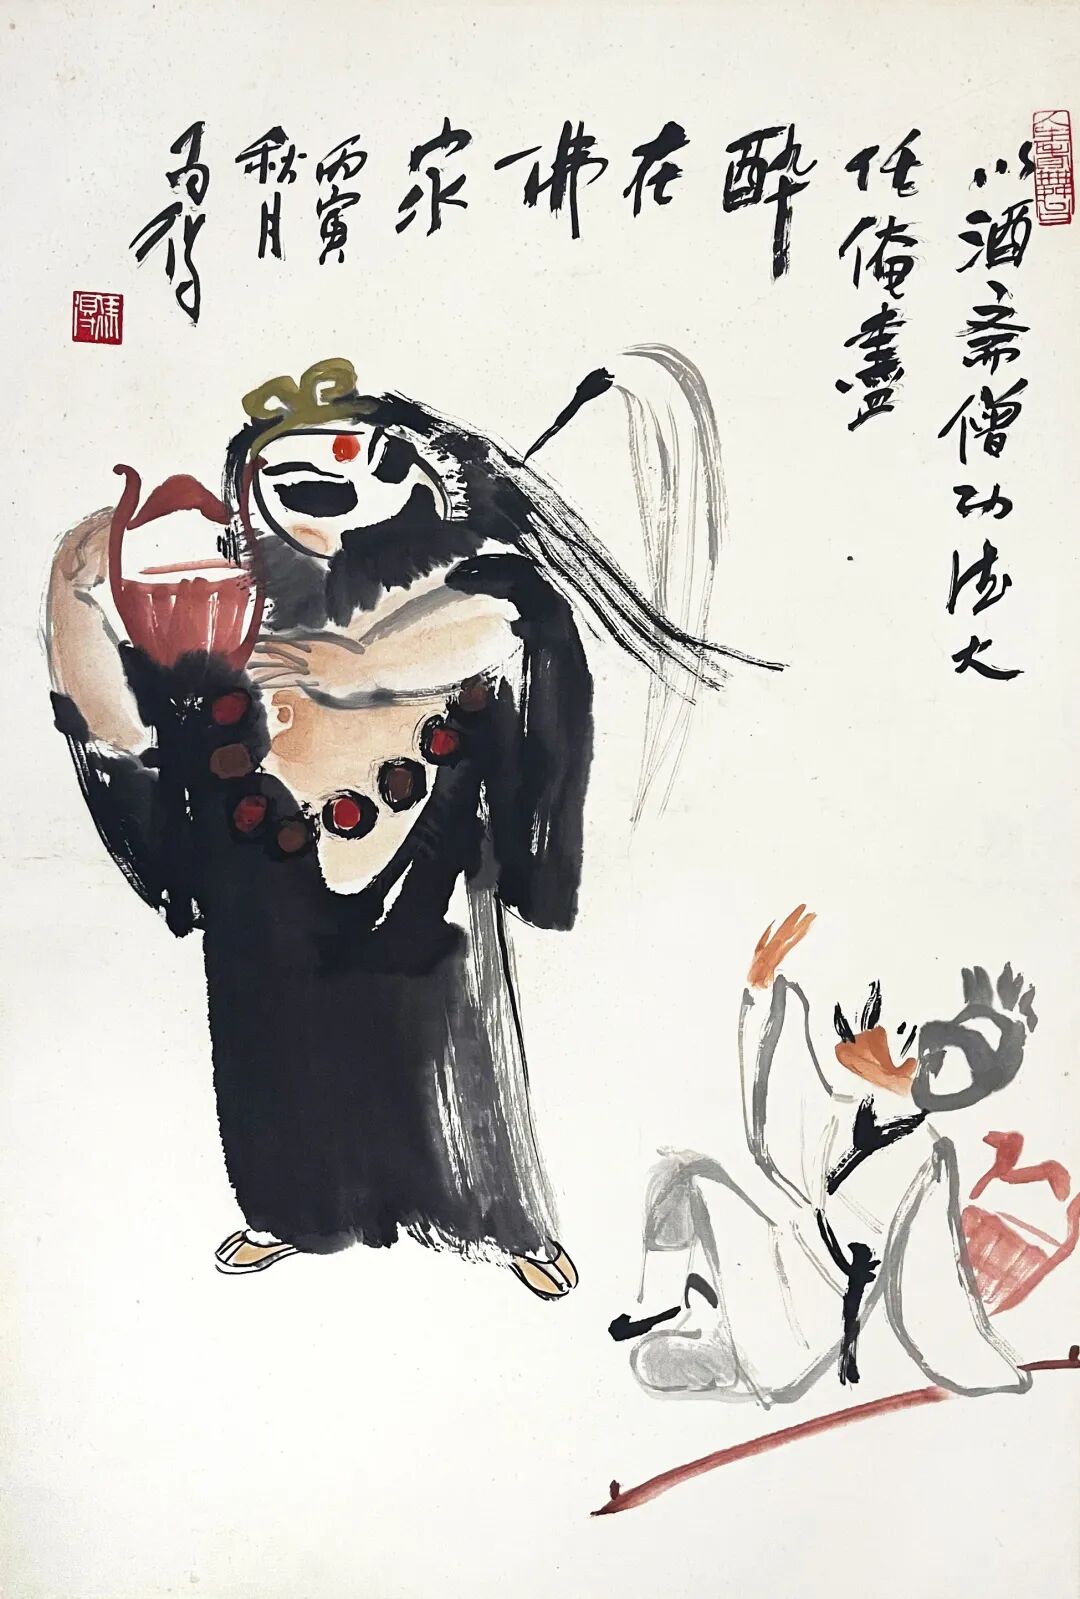 以酒斋僧功德大
任俺盡
醉
在
佛
家
丙寅
秋月
马得
馬得